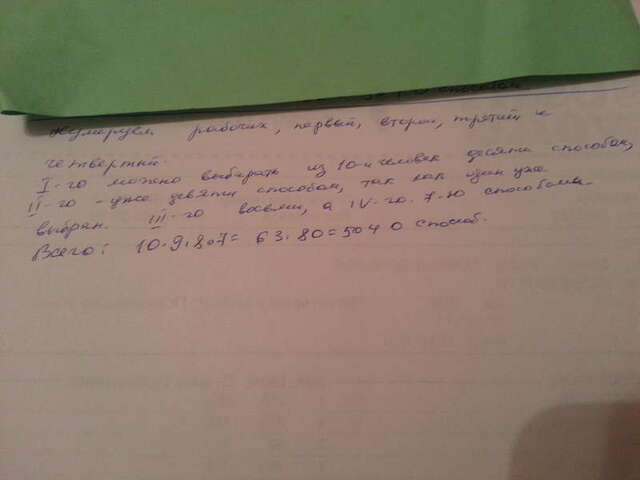 способом
Нумеруем рабочих, первый, второй, третий и
четвертый.
I-го можно выбирать из 10-и человек десятью способом,
II-го - уже девятью способом, так как один уже
выбран. III-го восьми, а IV-го. 7-ю способом.
Всего: 10.9.8.7= 63.80=5040 способ.